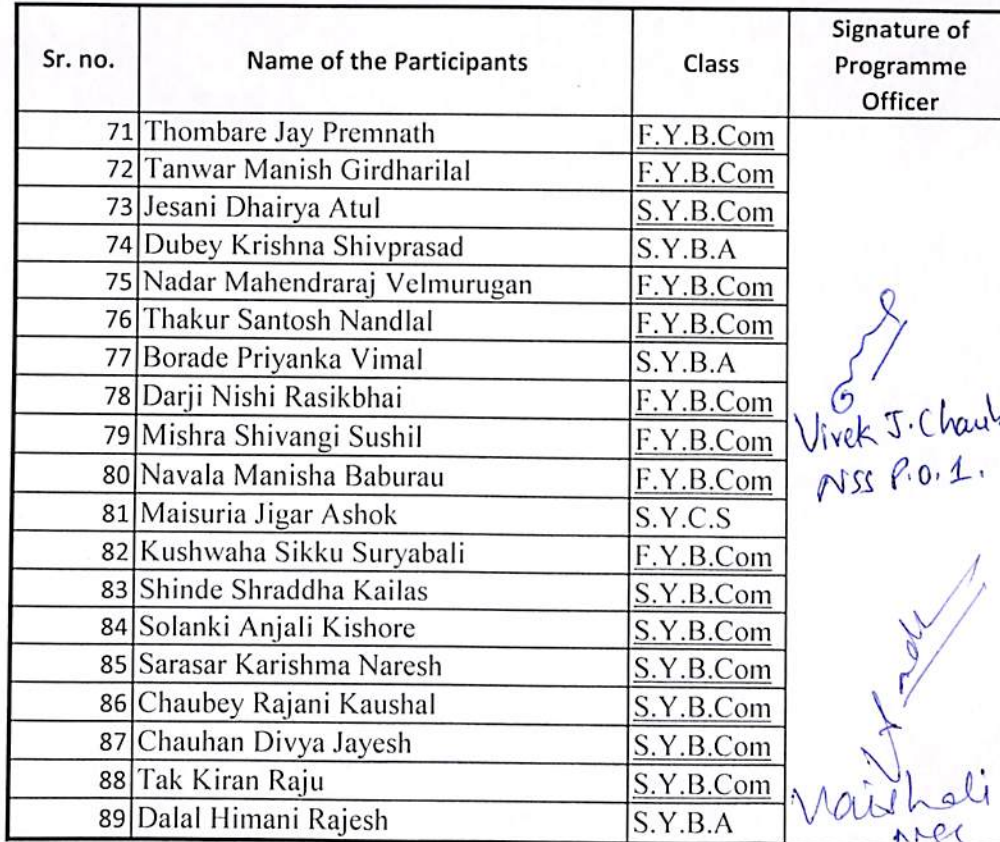 Sr. no. Name of the Participants Class Signature of Programme Officer
71 Thombare Jay Premnath F.Y.B.Com
72 Tanwar Manish Girdharilal F.Y.B.Com
73 Jesani Dhairya Atul S.Y.B.Com
74 Dubey Krishna Shivprasad S.Y.B.A
75 Nadar Mahendraraj Velmurugan F.Y.B.Com
76 Thakur Santosh Nandlal F.Y.B.Com
77 Borade Priyanka Vimal S.Y.B.A
78 Darji Nishi Rasikbhai F.Y.B.Com
79 Mishra Shivangi Sushil F.Y.B.Com
Vivek J. Chaub
80 Navala Manisha Baburau F.Y.B.Com
NSS P.O. 1.
81 Maisuria Jigar Ashok S.Y.C.S
82 Kushwaha Sikku Suryabali F.Y.B.Com
83 Shinde Shraddha Kailas S.Y.B.Com
84 Solanki Anjali Kishore S.Y.B.Com
85 Sarasar Karishma Naresh S.Y.B.Com
86 Chaubey Rajani Kaushal S.Y.B.Com
87 Chauhan Divya Jayesh S.Y.B.Com
88 Tak Kiran Raju S.Y.B.Com
Vaishali
89 Dalal Himani Rajesh S.Y.B.A